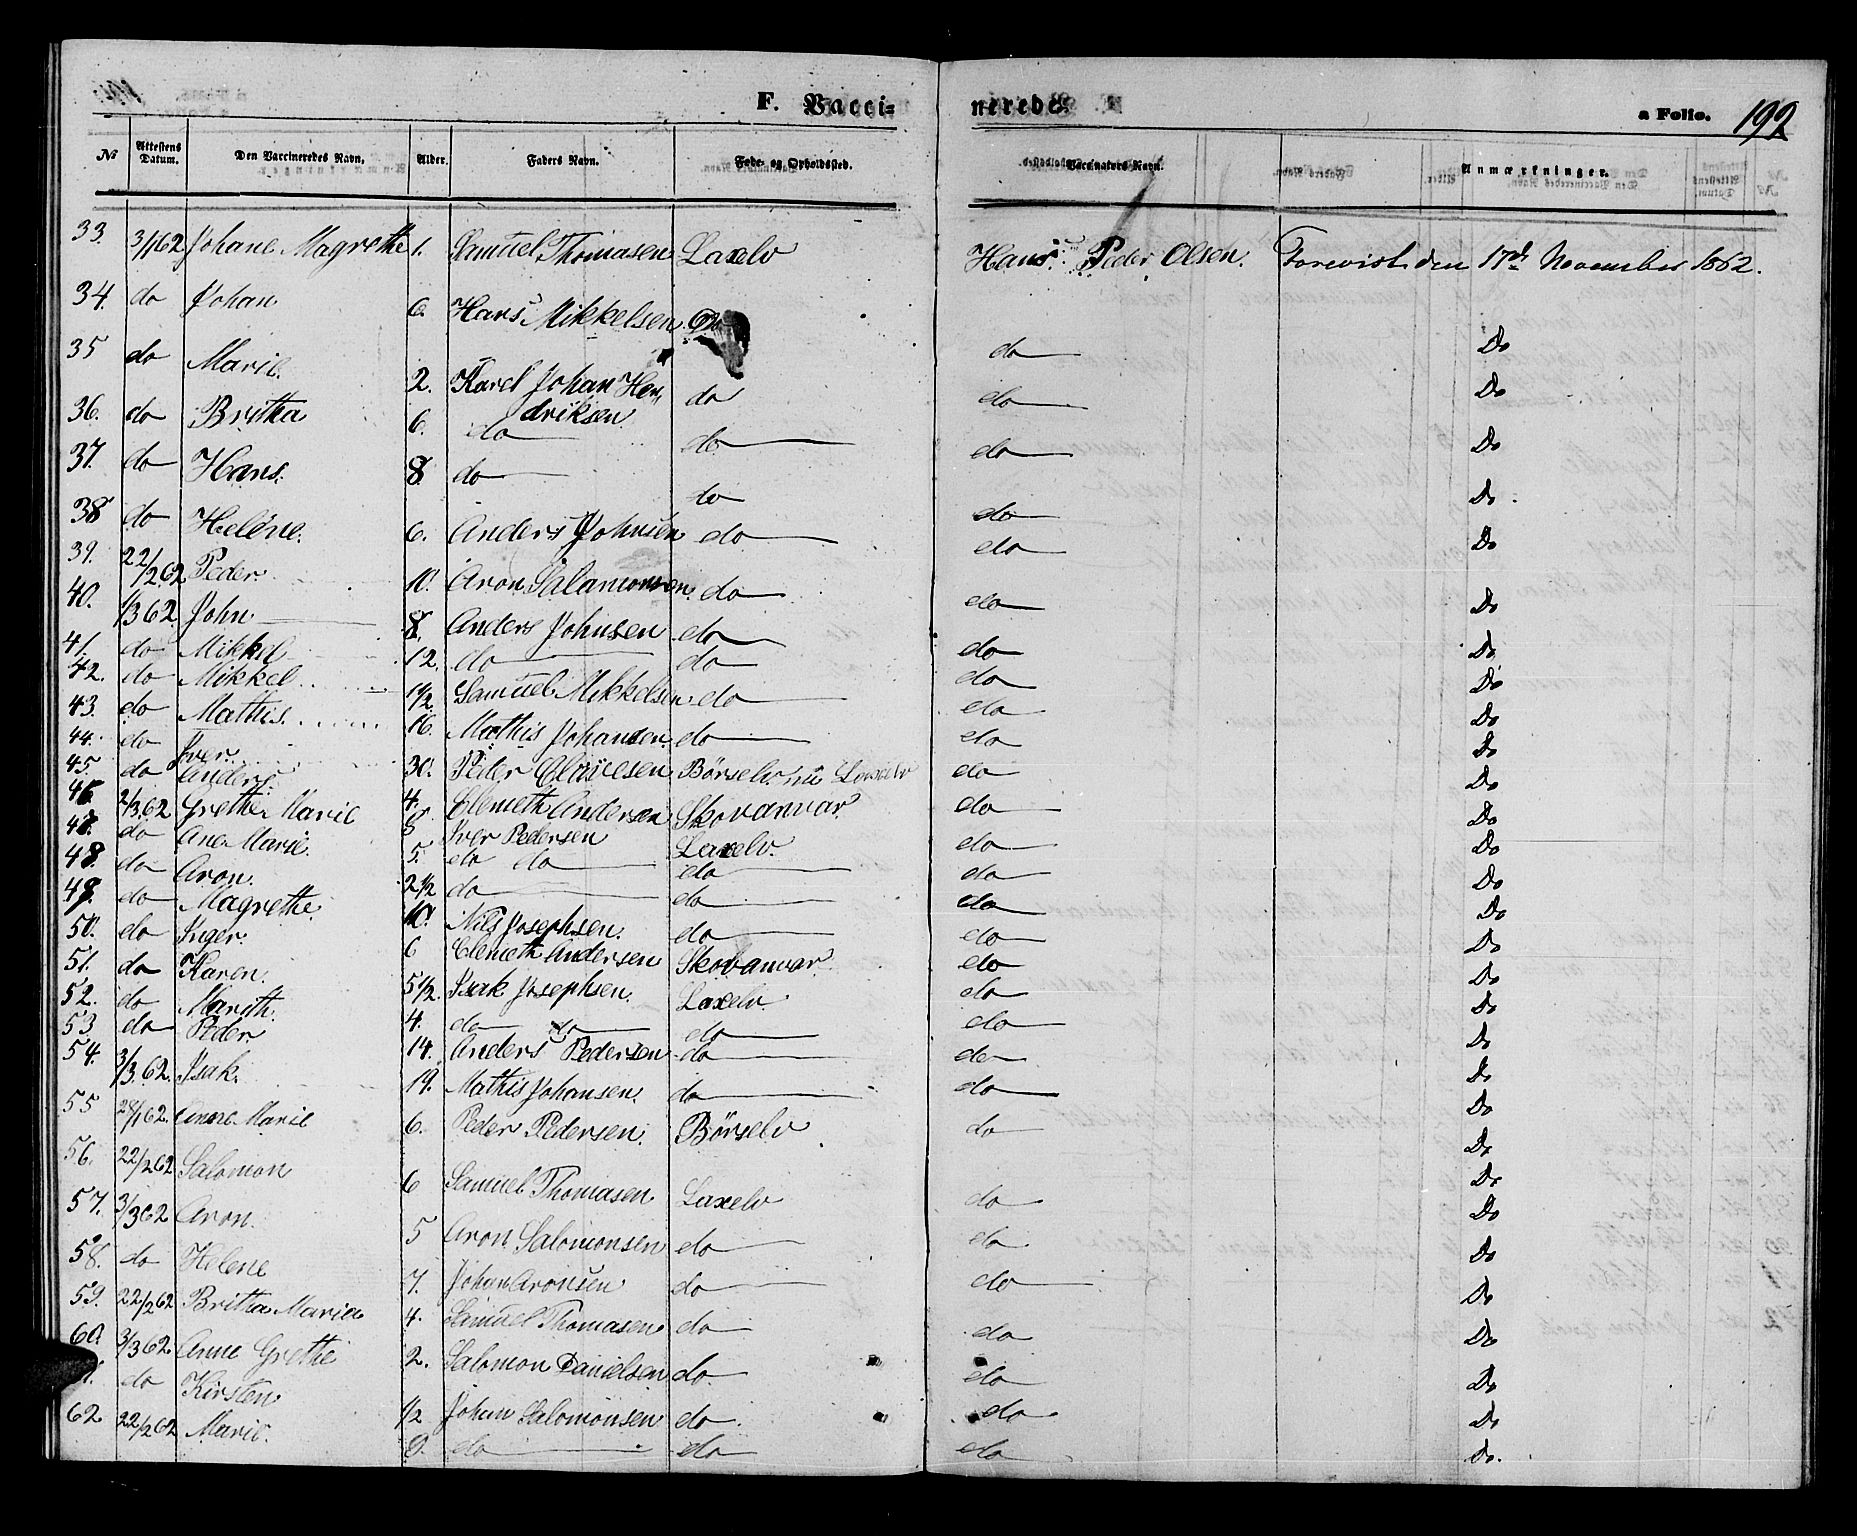 F. Vacci= nerede. a Folio. 192
№ Attestens Datum. Den Vaccineredes Navn. Alder. Faders Navn. Føde- og Opholdssted. Vaccinators Navn. Anmærkninger.
33. 3/1 62 Johane Magrethe 1. Samuel Thomasen Laxelv Hans Peder Olsen. Forevist den 17de November 1862.
34. do Johan 6. Hans Mikkelsen Do do Do
35 do Marie. 2. Karel Johan Hen- driksen do do Do
36. do Britha 6. do do do Do
37. do Hans. 8 do do do Do
38 do Heléne. 6. Anders Johnsen do do Do
39. 22/2 62 Peder. 10. Aron Salamonsen do do Do
40. 1/3 62. John 8. Anders Johnsen do do Do
41. do Mikkel 12. do do do Do
42. do Mikkel 1 1/2 Samuel Mikkelsen do do Do
43. do Mathis. 16. Mathis Johansen do do Do
44. do Iver. 30. Peder Clavesen Börselv nu Laxelv do Do
45. do Anders. 4. Clemeth Andersen Skovanvar do Do
46 2/3 62 Grethe Marie 8 Iver Pedersen Laxelv. do Do
47. do Ane Marie. 5. do do do do Do
48. do Aron. 2 1/2 do do do Do
49. do Magrethe. 10. Nils Josephsen. do do Do
50. do Inger. 6 Clemeth Andersen Skovanvar. do Do
51. do Karen. 5 1/2. Isak Josephsen. Laxelv. do Do
52. do Marith. 4. do do do do Do
53 do Peder. 14. Anders Pedersen do do Do
54. 3/3 62. Isak. 19. Mathis Johansen. do do Do
55 28/1 62. Anne Marie 6. Peder Pedersen. Börselv do Do
56. 22/2 62 Salomon 6 Samuel Thomasen Laxelv do Do
57. 3/3 62 Aron. 5 Aron Salomonsen do do Do
58. do Helene 7. Johan Aronsen do do Do
59. 22/2 62 Britha Maria 4. Samuel Thomasen do do Do
60. 3/3 62 Anne Grethe 2. Salomon Danielsen do do Do
1. do Kirsten 1/2 Johan Salomonsen do. do Do
62 22/2 62 Marie. 9. do do do Do.